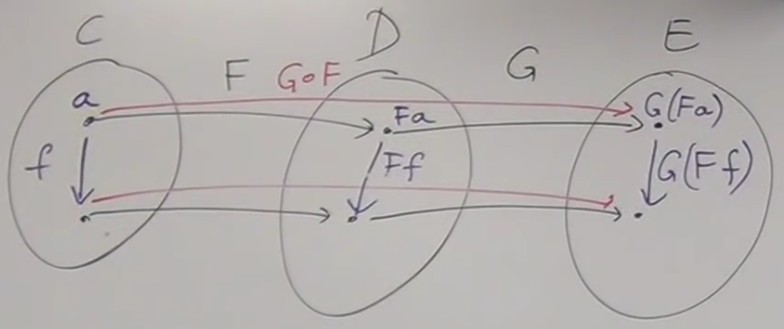 C D E
F G∘F G
a Fa G(Fa)
f Ff G(Ff)